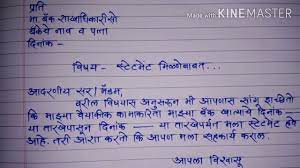 Made With
KINEMASTER
प्रति
मा. बँक शाखाधिकारीसो
बँकेचे नाव व पत्ता
दिनांक -
विषय - स्टेटमेंट मिळणेबाबत...
आदरणीय सर / मॅडम,
वरील विषयास अनुसरून मी आपणास सांगू इच्छितो
कि माझ्या वैयक्तिक कामाकरिता माझ्या बँक खात्याचे दिनांक
या तारखेपासून दिनांक — या तारखेपर्यंत मला स्टेटमेंट हवे
आहे. तरी आशा करतो कि आपण मला सहकार्य कराल.
आपला विश्वासू